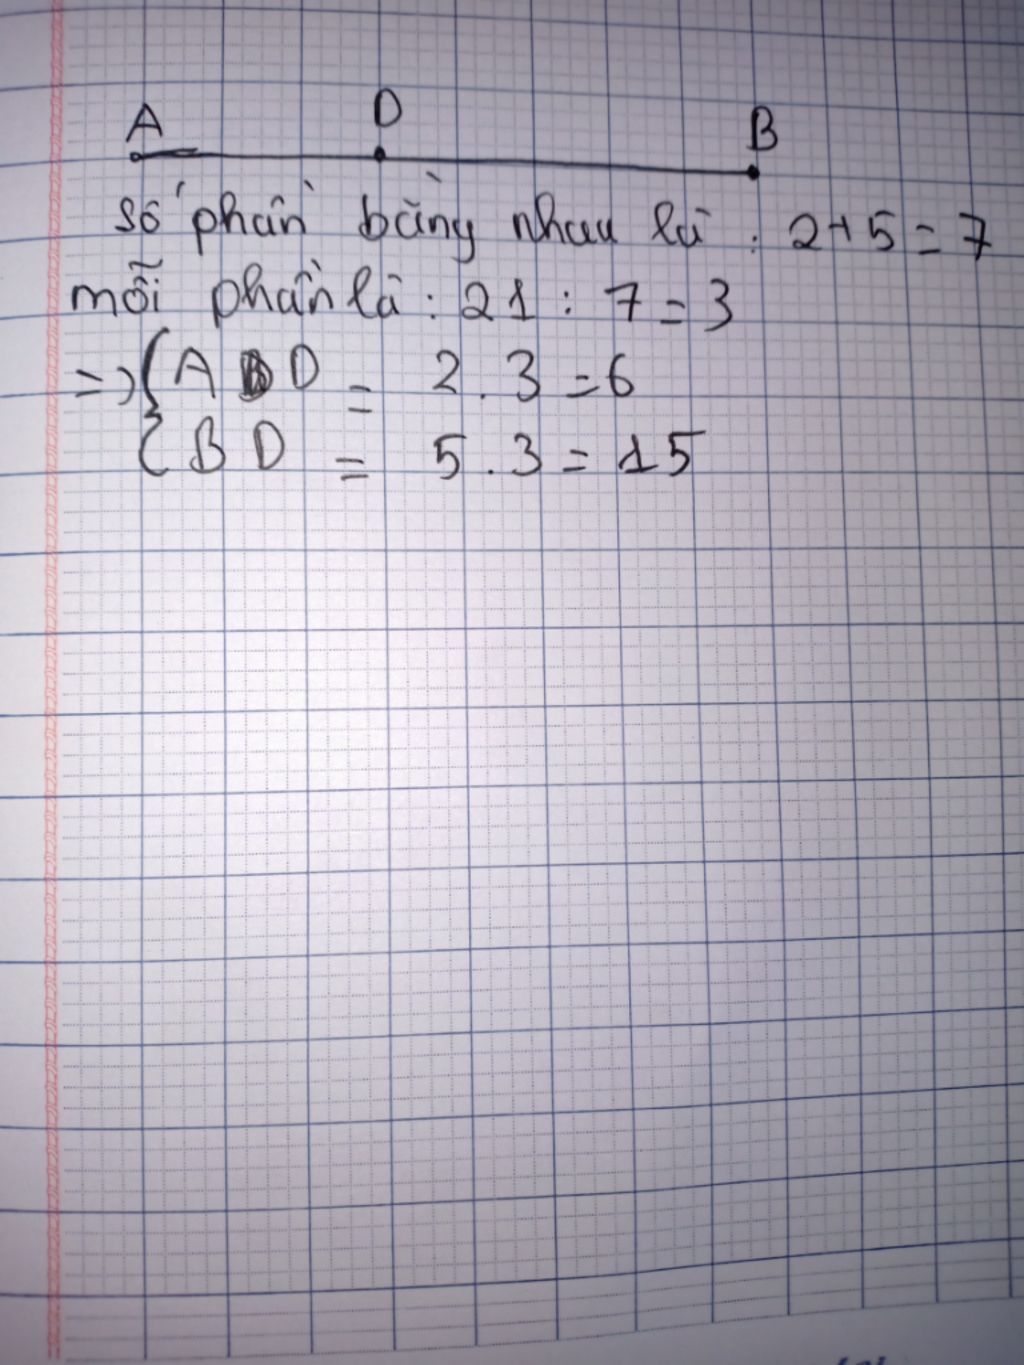 A D B
số phần bằng nhau là : 2+5=7
mỗi phần là : 21 : 7=3
=> { A D = 2.3=6
{ B D = 5.3=15